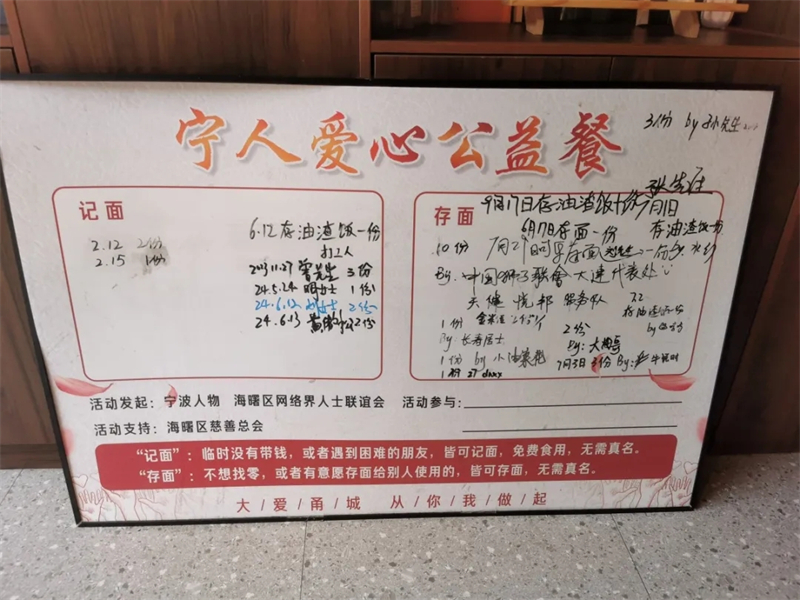 宁人爱心公益餐
3份 by 孙先生
记面
6.12 存油渣饭一份
打工人
2.12 2份
2.15 1份
2023.11.27 曾先生 3份
24.5.24 1份
24.6.12 2份
24.6.13 2份
存面
张先生
9月17日存油渣饭十份
7月1日
6月7日存面一份
存油渣饭一份
10份
7月21日
By: 中国狮子联会大连代表处
天健悦邦 服务队
7.2
1份
2份
By: 长寿居士
By:
1份 by 小油菜花
7月3日 3份 By:
活动发起：宁波人物 海曙区网络界人士联谊会 活动参与：
活动支持：海曙区慈善总会
“记面”：临时没有带钱，或者遇到困难的朋友，皆可记面，免费食用，无需真名。
“存面”：不想找零，或者有意愿存面给别人使用的，皆可存面，无需真名。
大/爱/甬/城 从/你/我/做/起